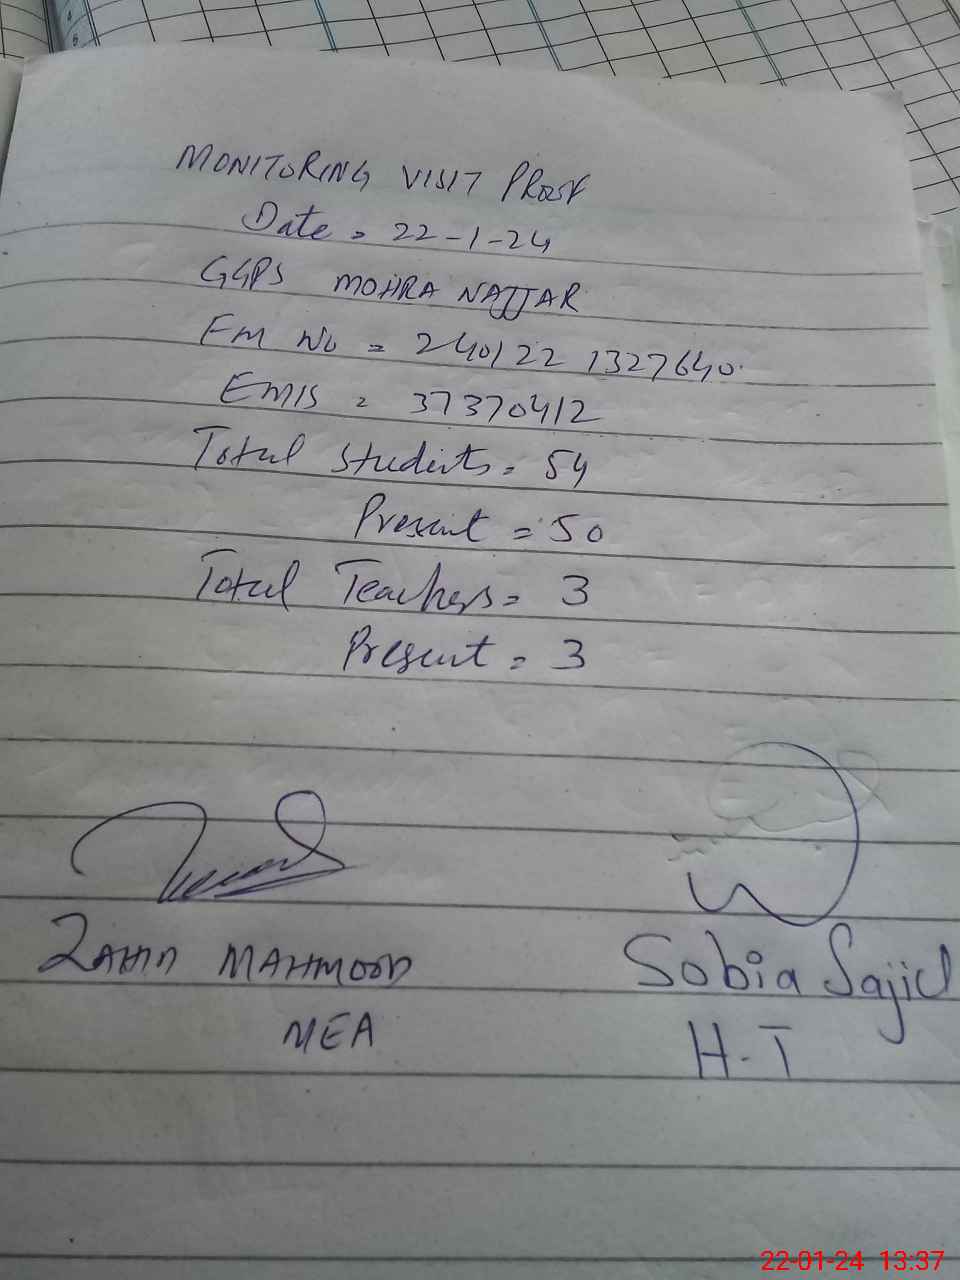 MONITORING VISIT PROOF
Date = 22-1-24
GGPS MOHRA NAJJAR
FM No = 240122 1327640
EMIS = 37370412
Total Students = 54
Present = 50
Total Teachers = 3
Present = 3
ZAHID MAHMOOD
MEA
Sobia Sajid
H.T
22-01-24 13:37